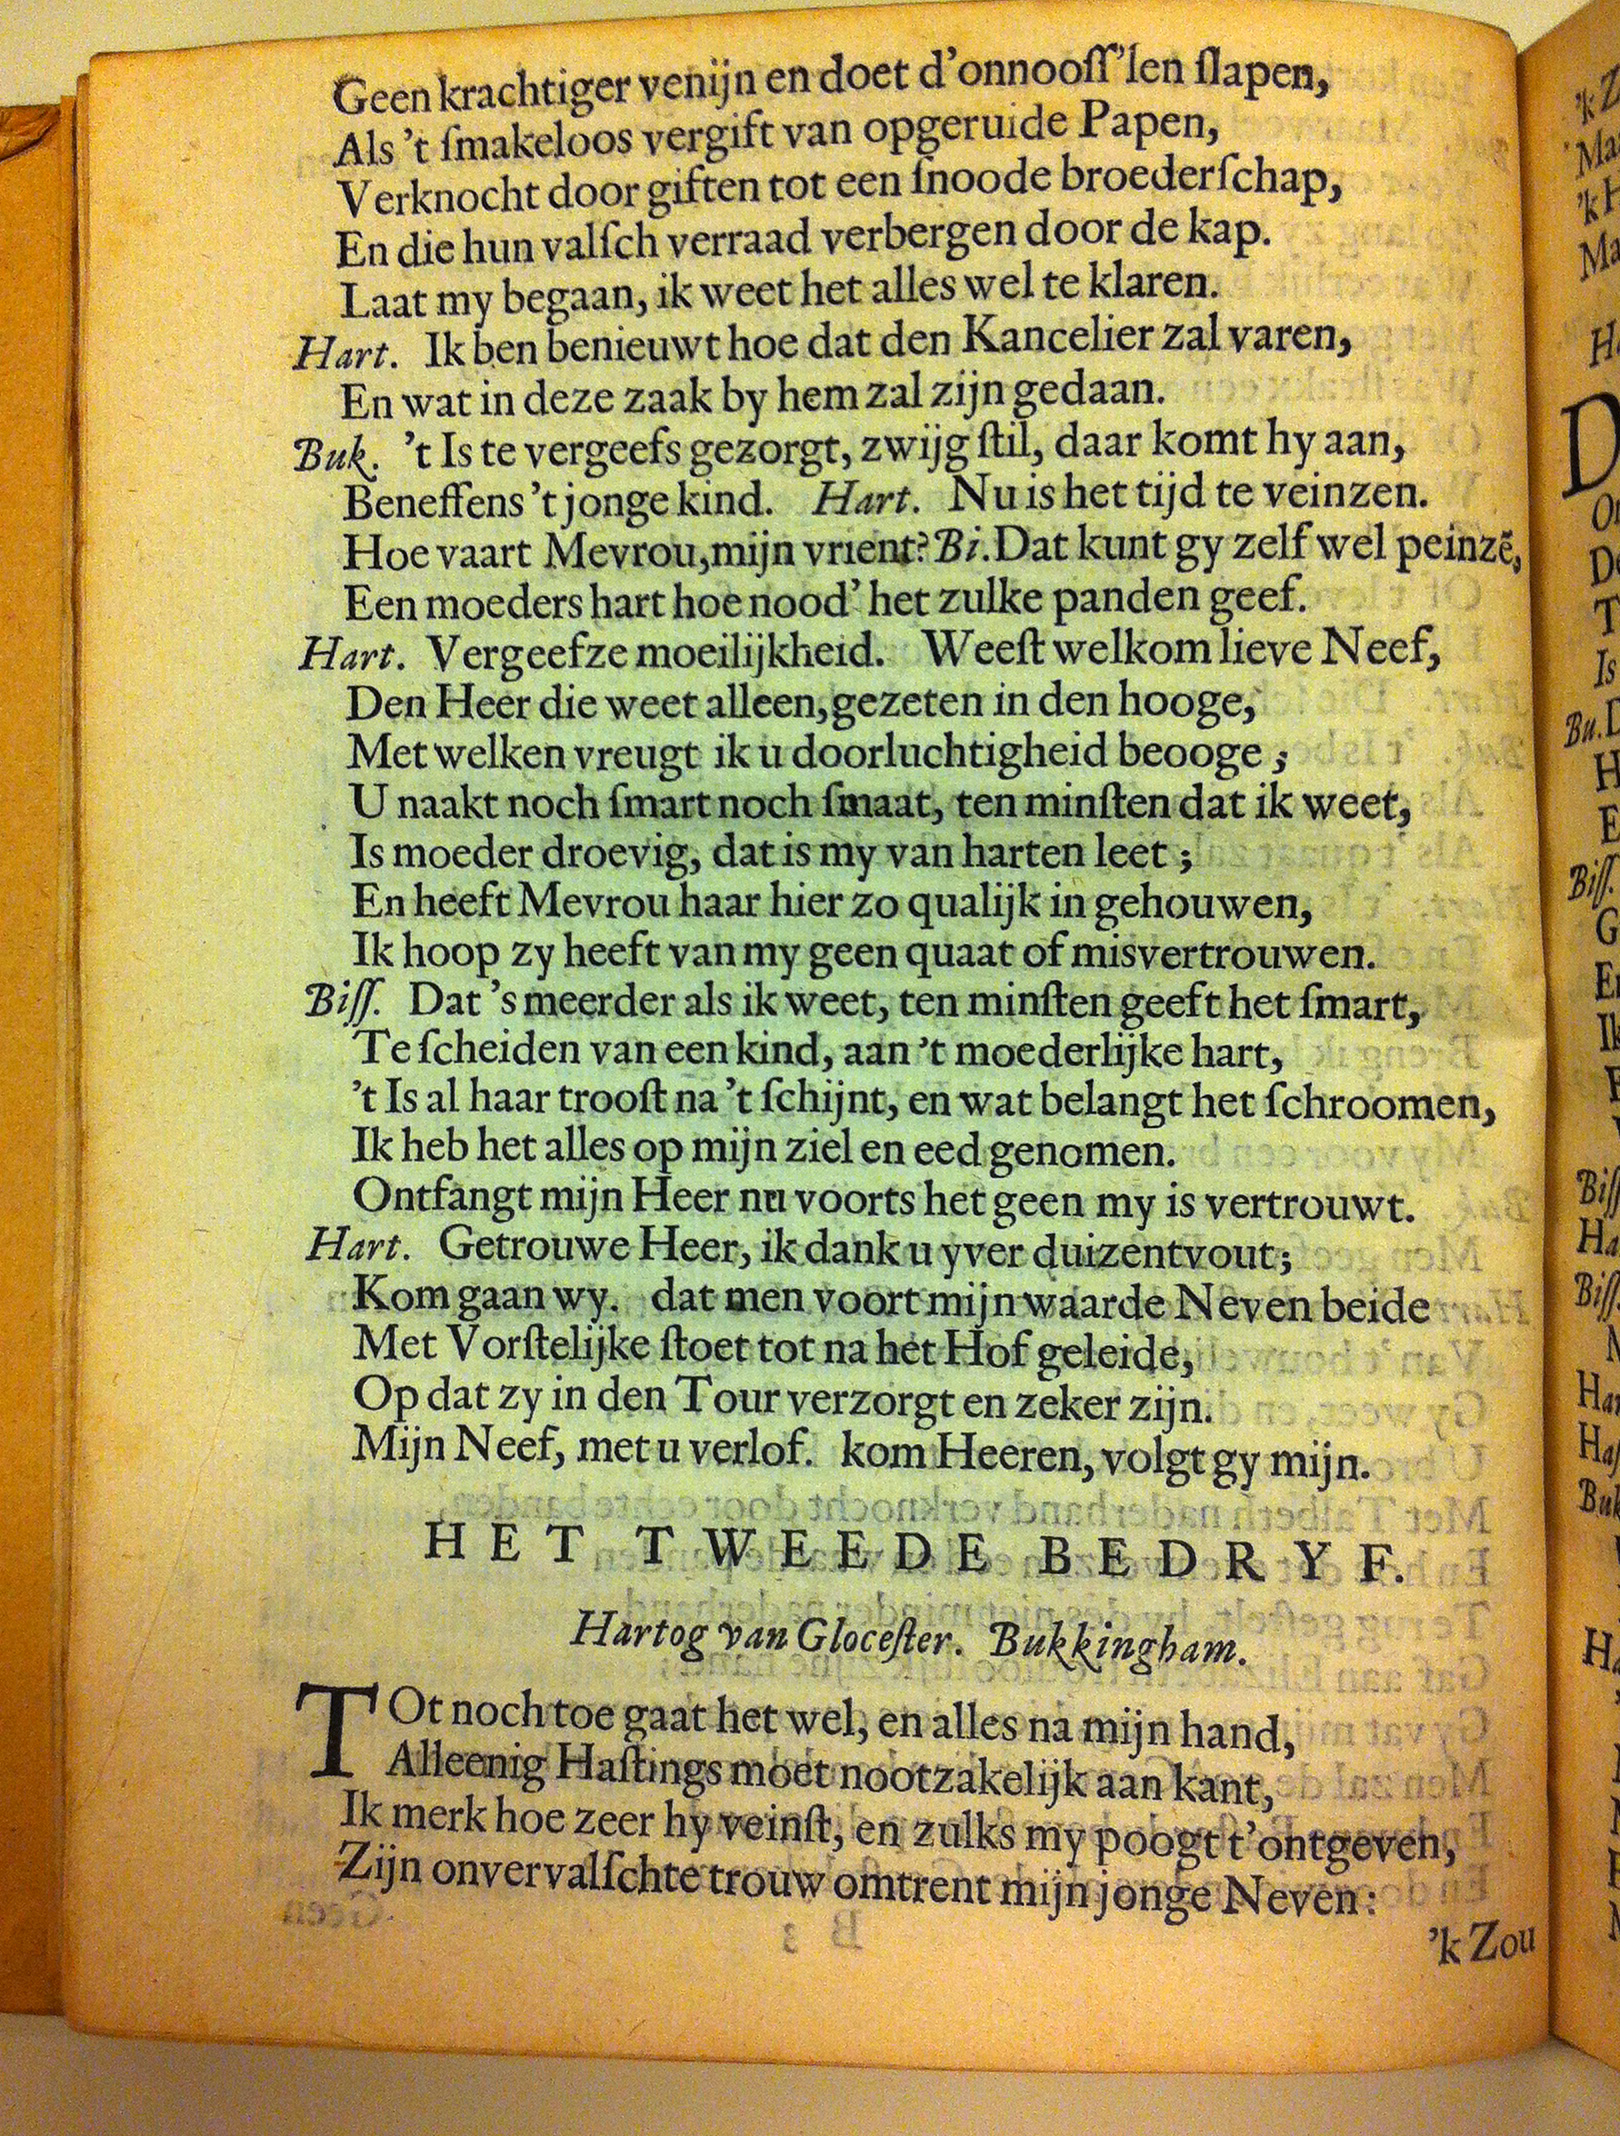 Geen krachtiger venijn en doet d'onnooſſ'len ſlapen,
Als 't ſmakeloos vergift van opgeruide Papen,
Verknocht door giften tot een ſnoode broederſchap,
En die hun valſch verraad verbergen door de kap.
Laat my begaan, ik weet het alles wel te klaren.
Hart. Ik ben benieuwt hoe dat den Kancelier zal varen,
En wat in deze zaak by hem zal zijn gedaan.
Buk. 't Is te vergeefs gezorgt, zwijg ſtil, daar komt hy aan,
Beneffens 't jonge kind. Hart. Nu is het tijd te veinzen.
Hoe vaart Mevrou, mijn vrient? Bi. Dat kunt gy zelf wel peinzẽ,
Een moeders hart hoe nood' het zulke panden geef.
Hart. Vergeefze moeilijkheid. Weeſt welkom lieve Neef,
Den Heer die weet alleen, gezeten in den hooge,
Met welken vreugt ik u doorluchtigheid beooge;
U naakt noch ſmart noch ſmaat, ten minſten dat ik weet,
Is moeder droevig, dat is my van harten leet;
En heeft Mevrou haar hier zo qualijk in gehouwen,
Ik hoop zy heeft van my geen quaat of misvertrouwen.
Biſſ. Dat 's meerder als ik weet, ten minſten geeft het ſmart,
Te ſcheiden van een kind, aan 't moederlijke hart,
't Is al haar trooſt na 't ſchijnt, en wat belangt het ſchroomen,
Ik heb het alles op mijn ziel en eed genomen.
Ontfangt mijn Heer nu voorts het geen my is vertrouwt.
Hart. Getrouwe Heer, ik dank u yver duizentvout;
Kom gaan wy. dat men voort mijn waarde Neven beide
Met Vorſtelijke ſtoet tot na het Hof geleide,
Op dat zy in den Tour verzorgt en zeker zijn.
Mijn Neef, met u verlof. kom Heeren, volgt gy mijn.
HET TWEEDE BEDRYF.
Hartog van Gloceſter. Bukkingham.
TOt noch toe gaat het wel, en alles na mijn hand,
Alleenig Haſtings moet nootzakelijk aan kant,
Ik merk hoe zeer hy veinſt, en zulks my poogt t'ontgeven,
Zijn onvervalſchte trouw omtrent mijn jonge Neven:
'k Zou